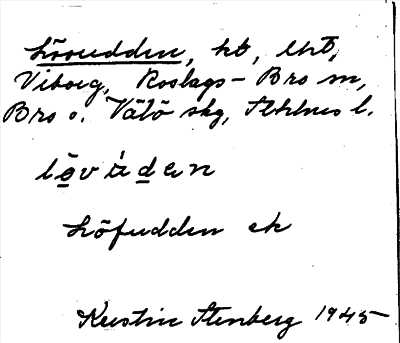 Lövudden, kt, lht,
Viboeg, Roslags-Bro sn,
Bro o. Vätö skg, Sthlms l.
lǫ̈v ù̇ d̲ ǝ n
Löfudden ek
Kerstin Stenberg 1945